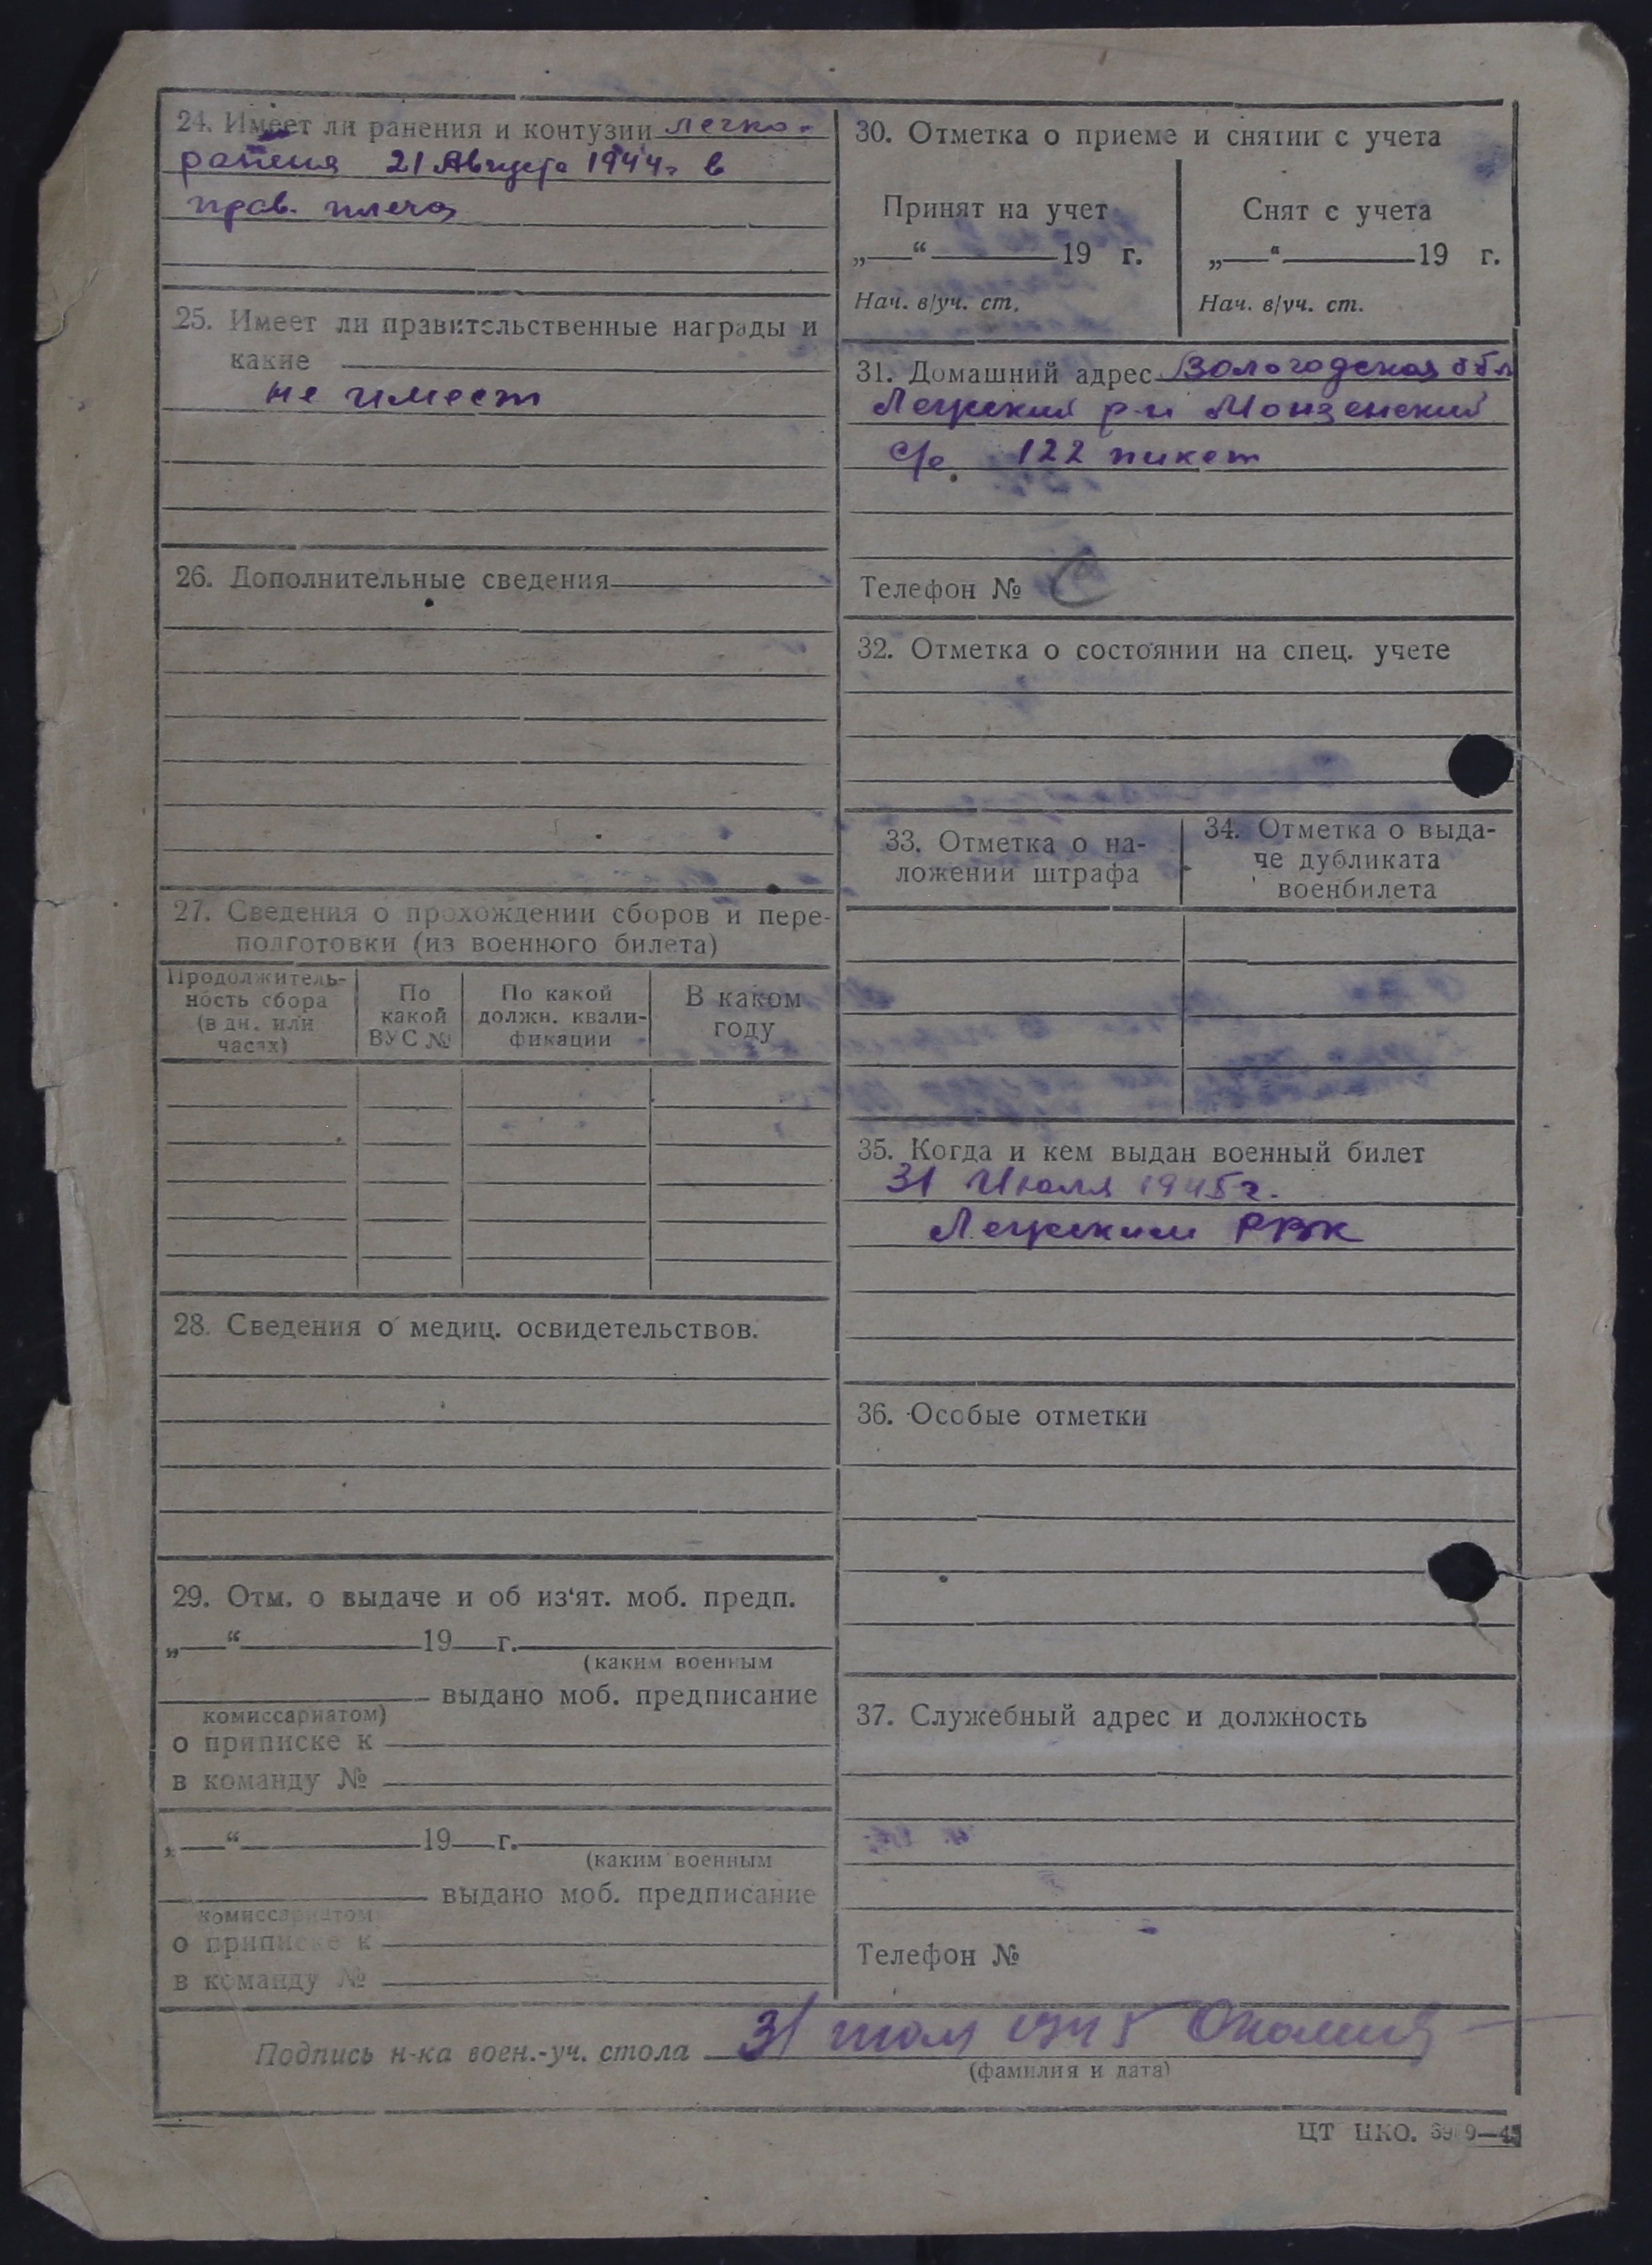 24. Имеет ли ранения и контузии легко-
ранения 21 Августа 1944г в
прав. плечо
25. Имеет ли правительственные награды и
какие
не имеет
26. Дополнительные сведения
27. Сведения о прохождении сборов и пере-
подготовки (из военного билета)
Продолжитель-
ность сбора
(в дн. или
часах)
По
какой
ВУС №
По какой
должн. квали-
фикации
В каком
году
28. Сведения о медиц. освидетельствов.
29. Отм. о выдаче и об из‘ят. моб. предп.
„—“ 19 г.
(каким военным
выдано моб. предписание
комиссариатом)
о приписке к
в команду №
„—“ 19 г.
(каким военным
выдано моб. предписание
комиссариатом
о приписке к
в команду №
30. Отметка о приеме и снятии с учета
Принят на учет
„—“ 19 г.
Нач. в/уч. ст.
Снят с учета
„—“ 19 г.
Нач. в/уч. ст.
31. Домашний адрес Вологодская обл
Лежский р-н Монзенский
с/с 122 пикет
Телефон №
32. Отметка о состоянии на спец. учете
33. Отметка о на-
ложении штрафа
34. Отметка о выда-
че дубликата
военбилета
35. Когда и кем выдан военный билет
31 Июля 1945г.
Лежским РВК
36. Особые отметки
37. Служебный адрес и должность
Телефон №
Подпись н-ка воен.-уч. стола 31 июля 1945
(фамилия и дата)
ЦТ НКО.